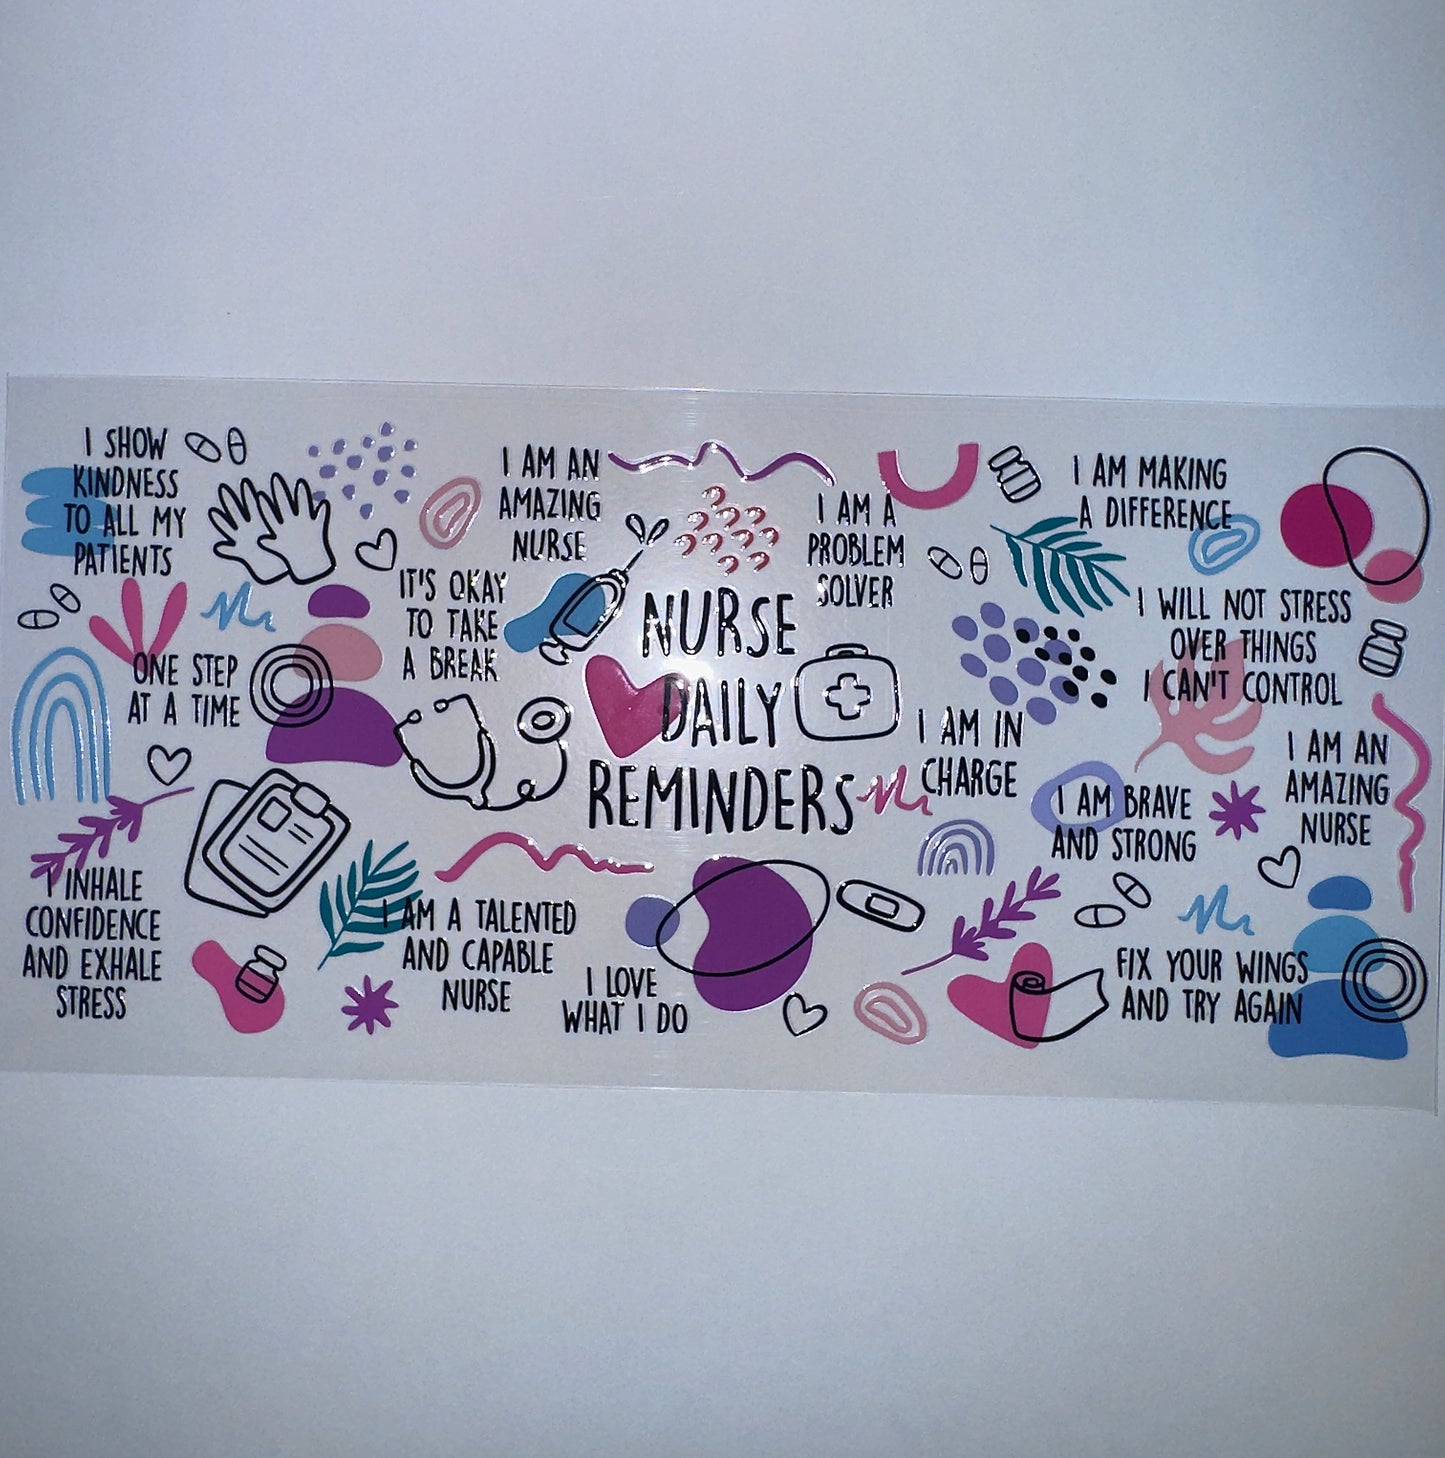 I SHOW
KINDNESS
TO ALL MY
PATIENTS
I AM AN
AMAZING
NURSE
I AM A
PROBLEM
SOLVER
I AM MAKING
A DIFFERENCE
IT'S OKAY
TO TAKE
A BREAK
NURSE
DAILY
REMINDERS
I WILL NOT STRESS
OVER THINGS
I CAN'T CONTROL
ONE STEP
AT A TIME
I AM IN
CHARGE
I AM BRAVE
AND STRONG
I AM AN
AMAZING
NURSE
I INHALE
CONFIDENCE
AND EXHALE
STRESS
I AM A TALENTED
AND CAPABLE
NURSE
I LOVE
WHAT I DO
FIX YOUR WINGS
AND TRY AGAIN